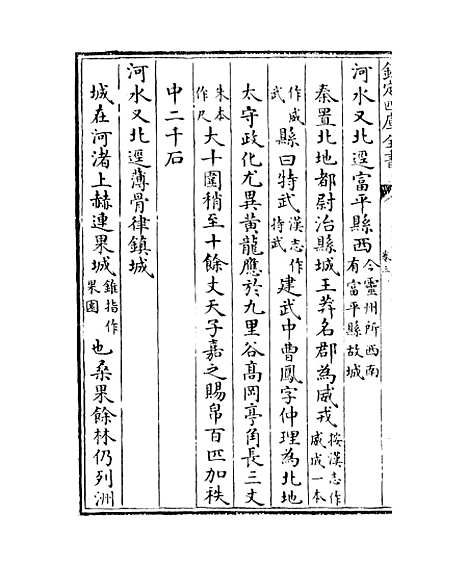 欽定四庫全書 卷三
河水又北逕富平縣西今靈州所西南有富平縣故城
秦置北地都尉治縣城王莽名郡為威戎按漢志作威成一本
作威武縣曰特武漢志作特武建武中曹鳳字仲理為北地
太守政化尤異黃龍應於九里谷髙岡亭角長三丈
朱本作尺大十圍稍至十餘丈天子嘉之賜帛百匹加秩
中二千石
河水又北逕薄骨律鎮城
城在河渚上赫連果城錐指作果園也桑果餘林仍列洲